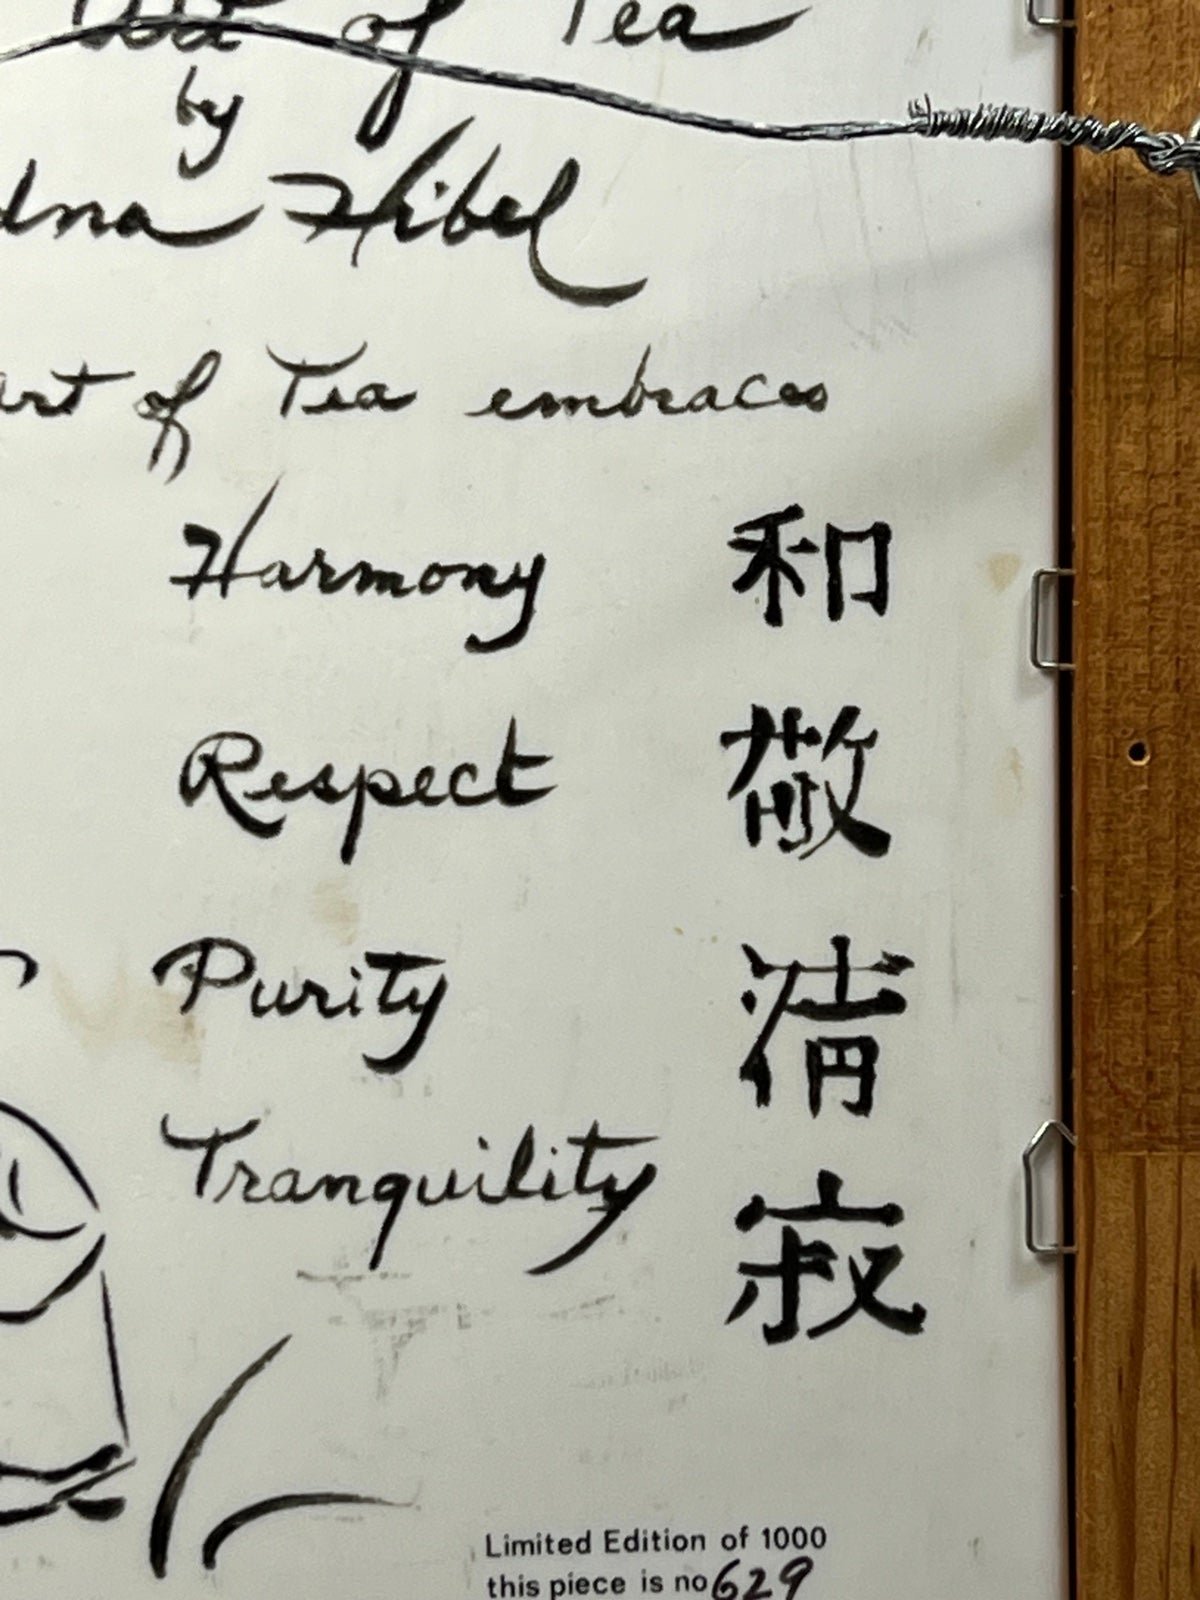 of Tea
by
Hibel
of Tea embraces
Harmony 和
Respect 敬
Purity 清
Tranquility 寂
Limited Edition of 1000
this piece is no 629